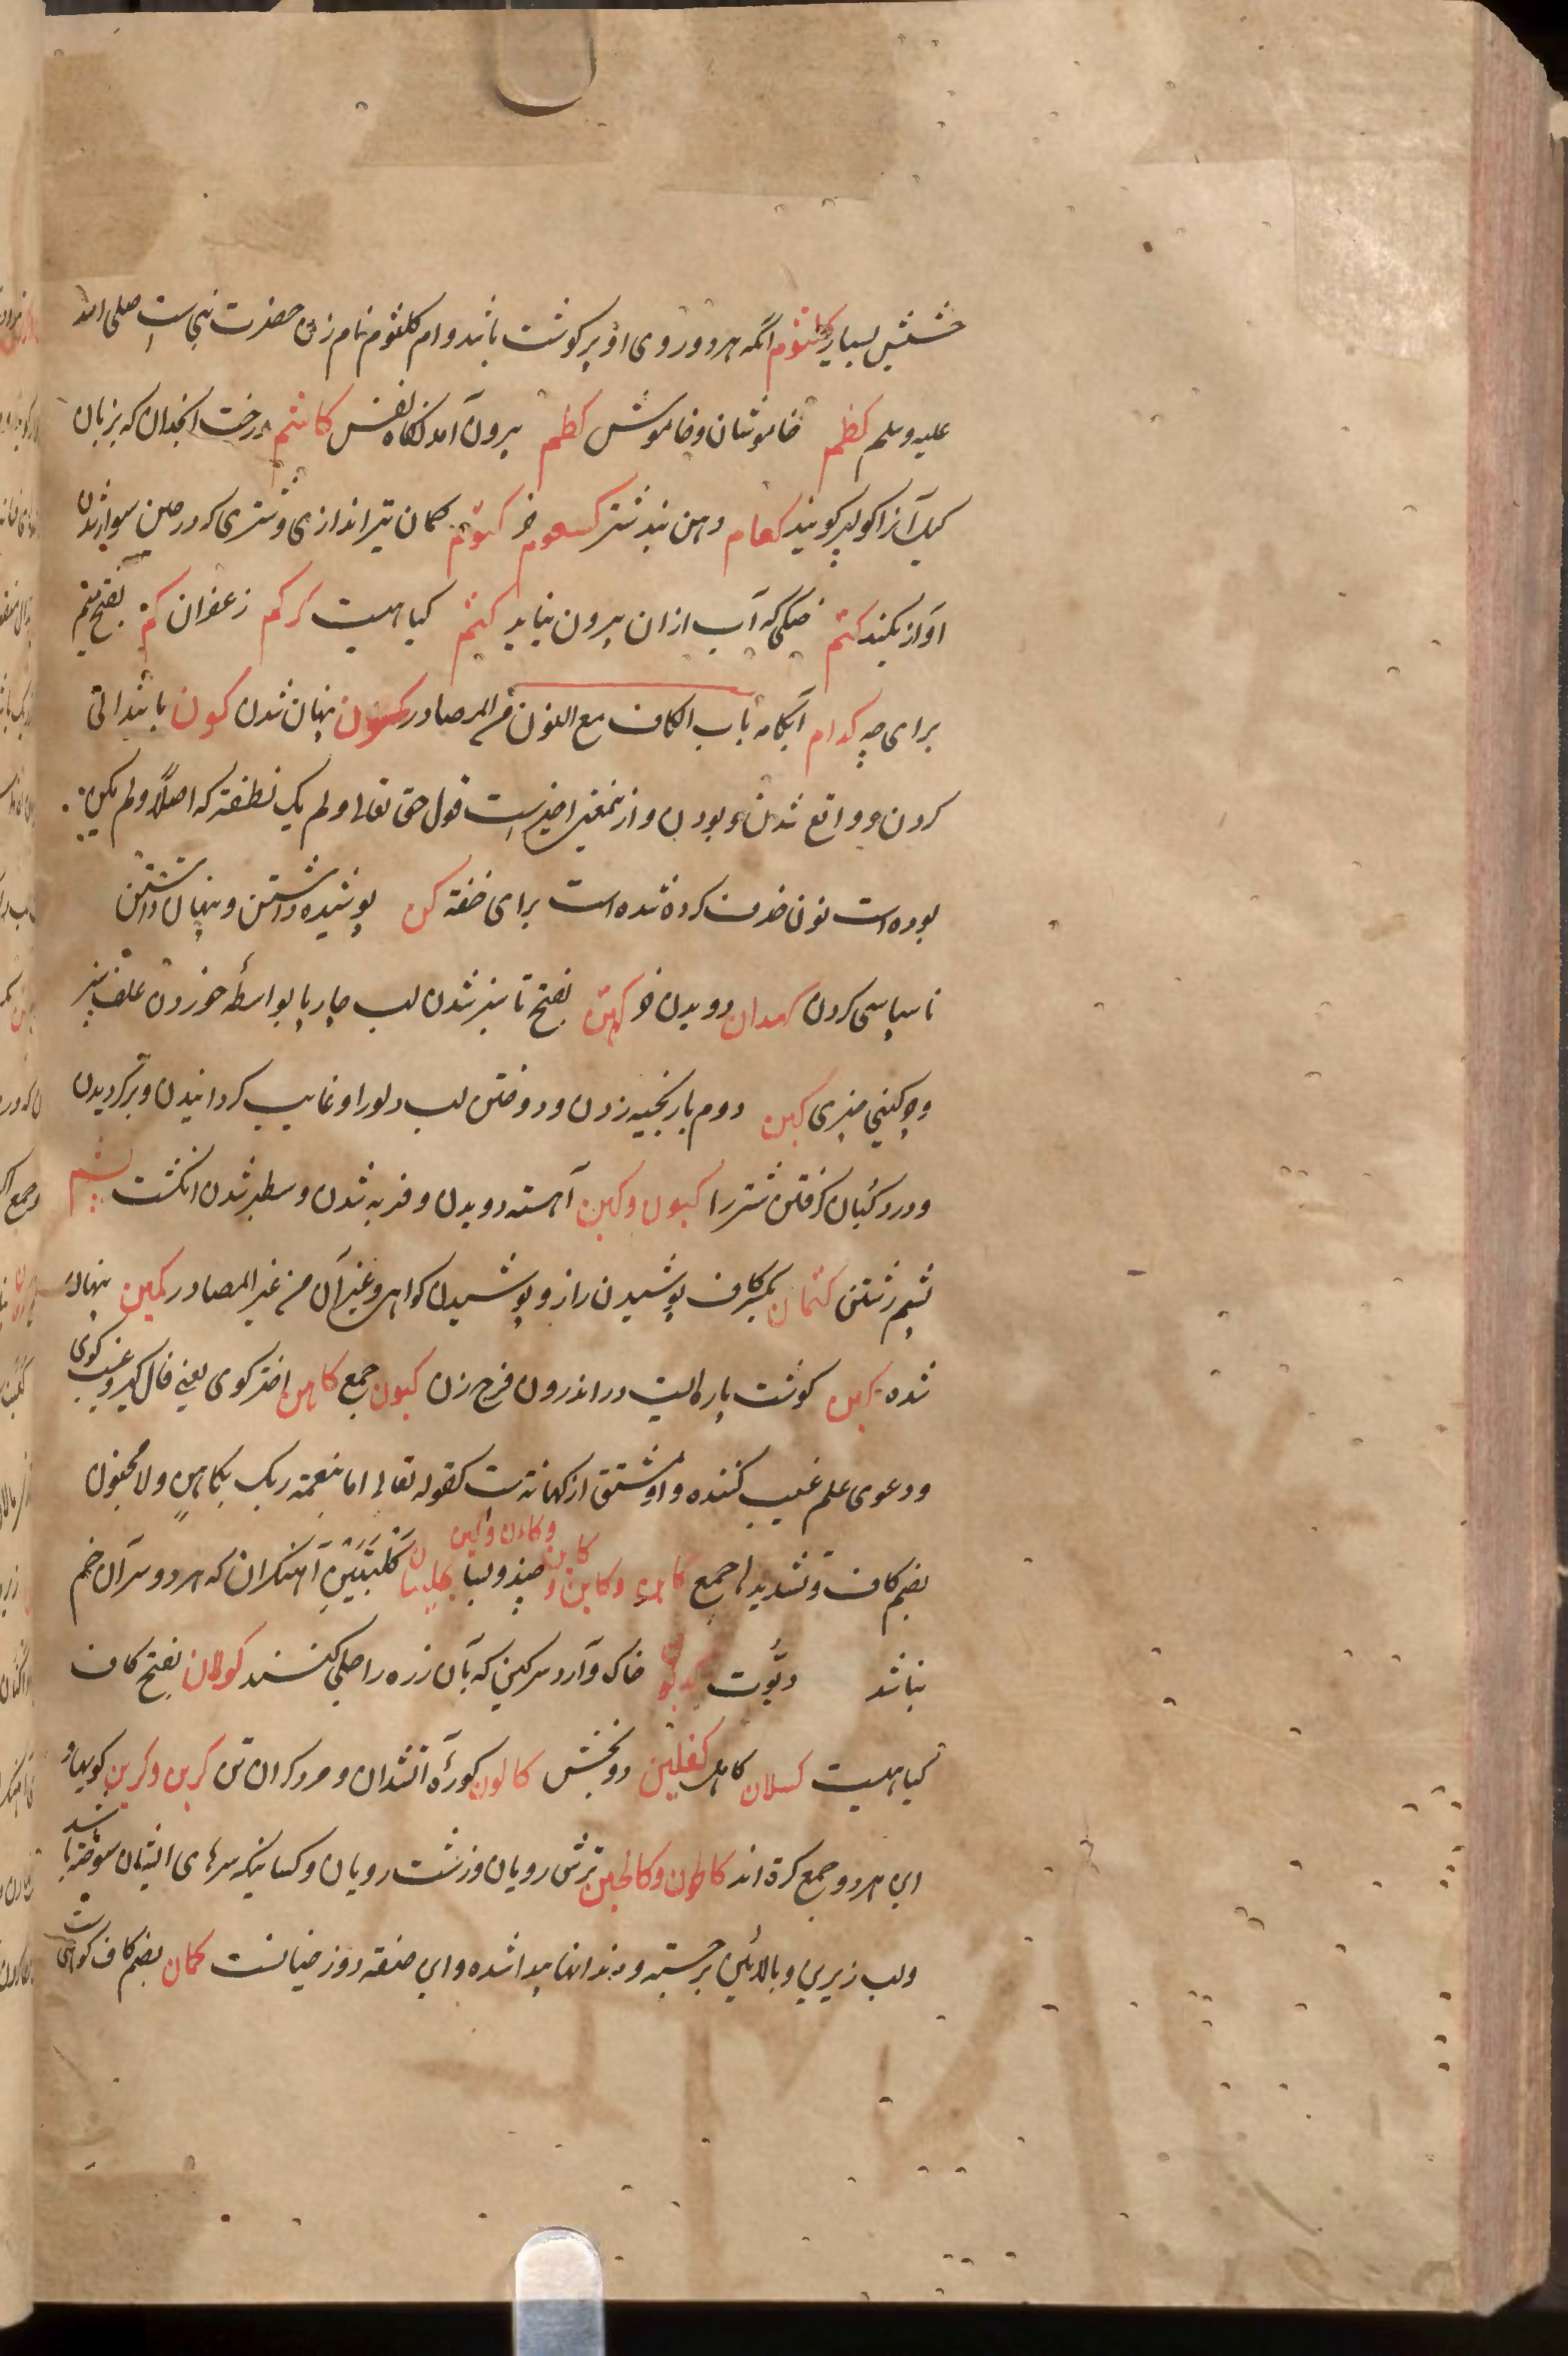 خشش بسیار کلثوم انکه هر دو روی او پر کوشت باشد و ام کلثوم نام زن حضرت نبی ست صلی الله
علیه وسلم کظم خاموشان و خاموش کظم بیرون آمدنکاه نفس کاشم درخت انجدان که بزبان
کیل آنرا کولپر کویند کعام دهن بند شتر کسعوم خر کتوم کمان تیراندازی و شتری که در حین سوار شدن
آواز نکند کتم خیکی که آب ازان بیرون نیاید کتم کیاهیست کرکم زعفران کم بفتح میم
برای چه کدام آنکامه باب الکاف مع النون من المصادر کمون پنهان شدن کون با ابتدائی
کردن و واقع شدن و بودن و از بمعنی اخیرست قول حق تعالی و لم یک نطفة که اصلاً و لم یکن
بوده است نون حذف کرده شده است برای خفة کن پوشیده داشتن و پنهان داشتن
ناسپاسی کردن کهدان دویدن خر کهتن بفتح تا سبز شدن لب چارپا بواسطه خوردن علف سبز
و چرکینی چیزی کبن دوم بار بخیه زدن و دوختن لب دلو را و غایب کردانیدن و برکردیدن
و درد کتان کرفتن شتر را کبون و کبن آهسته دویدن و فربه شدن و سطبر شدن انکشت
پشم رشتن کتمان بکسر کاف پوشیدن راز و پوشیدن کواهی و غیر آن من غیر المصادر کمین پنهان
شده کین کوشت پاره ایست در اندرون فرج زن کیون جمع کاهن اختر کوی یعنی فال کیر و غیب کوی
و دعوی علم غیب کننده و او مشتق از کهانة ست کقوله تعالی اما بنعمة ربک بکاهن ولا مجنون
بضم کاف و تشدید ها جمع کاین و کاین و چند و بسا کلبتین آهنکران که هر دو سر آن خم
نباشد و بوت خاک و آرد سرکین که بآن زره را جلی کنند کولان بفتح کاف
کیاهیست کسلان کاهل کفلین دو بخش کانون کوره آتشدان و مرد کران تن کرین و کرین کویها
این هر دو جمع کرة اند کالحون و کالحین ترش رویان و زشت رویان و کسانیکه سرهای ایشان سوخته باشد
و لب زیرین و بالائین برجسته و دندانها پیدا شده و این صفة دوزخیانست کمان بضم کاف